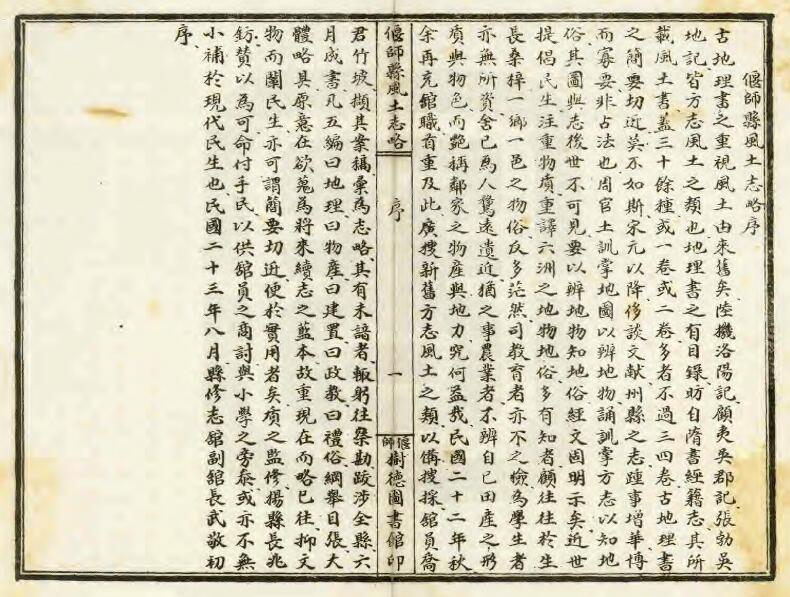 偃師縣風土志略序
古地理書之重視風土由來舊矣陸機洛陽記顧夷吳郡記張勃吳
地記皆方志風土之類也地理書之有目錄昉自隋書經籍志其所
載風土書蓋三十餘種或一卷或二卷多者不過三四卷古地理書
之簡要切近莫不如斯宋元以降侈談文献州縣之志踵事增華博
而寡要非古法也周官土訓掌地圖以辨地物誦訓掌方志以知地
俗其圖與志後世不可見要以辨地物知地俗經文固明示矣近世
提倡民生注重物質重譯六洲之地物地俗多有知者顧往往於生
長桑梓一鄉一邑之物俗反多茫然司教育者亦不之檢為學生者
亦無所資舍已為人騖遠遺近猶之事農業者不辨自已田產之形
質與物色而艷稱鄰家之物產與地力究何益哉民國二十二年秋
余再充舘職首重及此廣搜新舊方志風土之類以備搜採舘員喬
偃師縣風土志略
序
一
偃師樹德圖書舘印
君竹坡擷其案稿彙為志略其有未諳者輙躬往察勘跋涉全縣六
月成書凡五編曰地理曰物產曰建置曰政教曰禮俗綱舉目張大
體略具原意在欲蒐為將來續志之藍本故重現在而略已往抑文
物而闡民生亦可謂簡要切近便於實用者矣質之監修揚縣長兆
鈁贊以為可命付手民以供舘員之商討與小學之旁叅或亦不無
小補於現代民生也民國二十三年八月縣修志舘副舘長武敬初
序